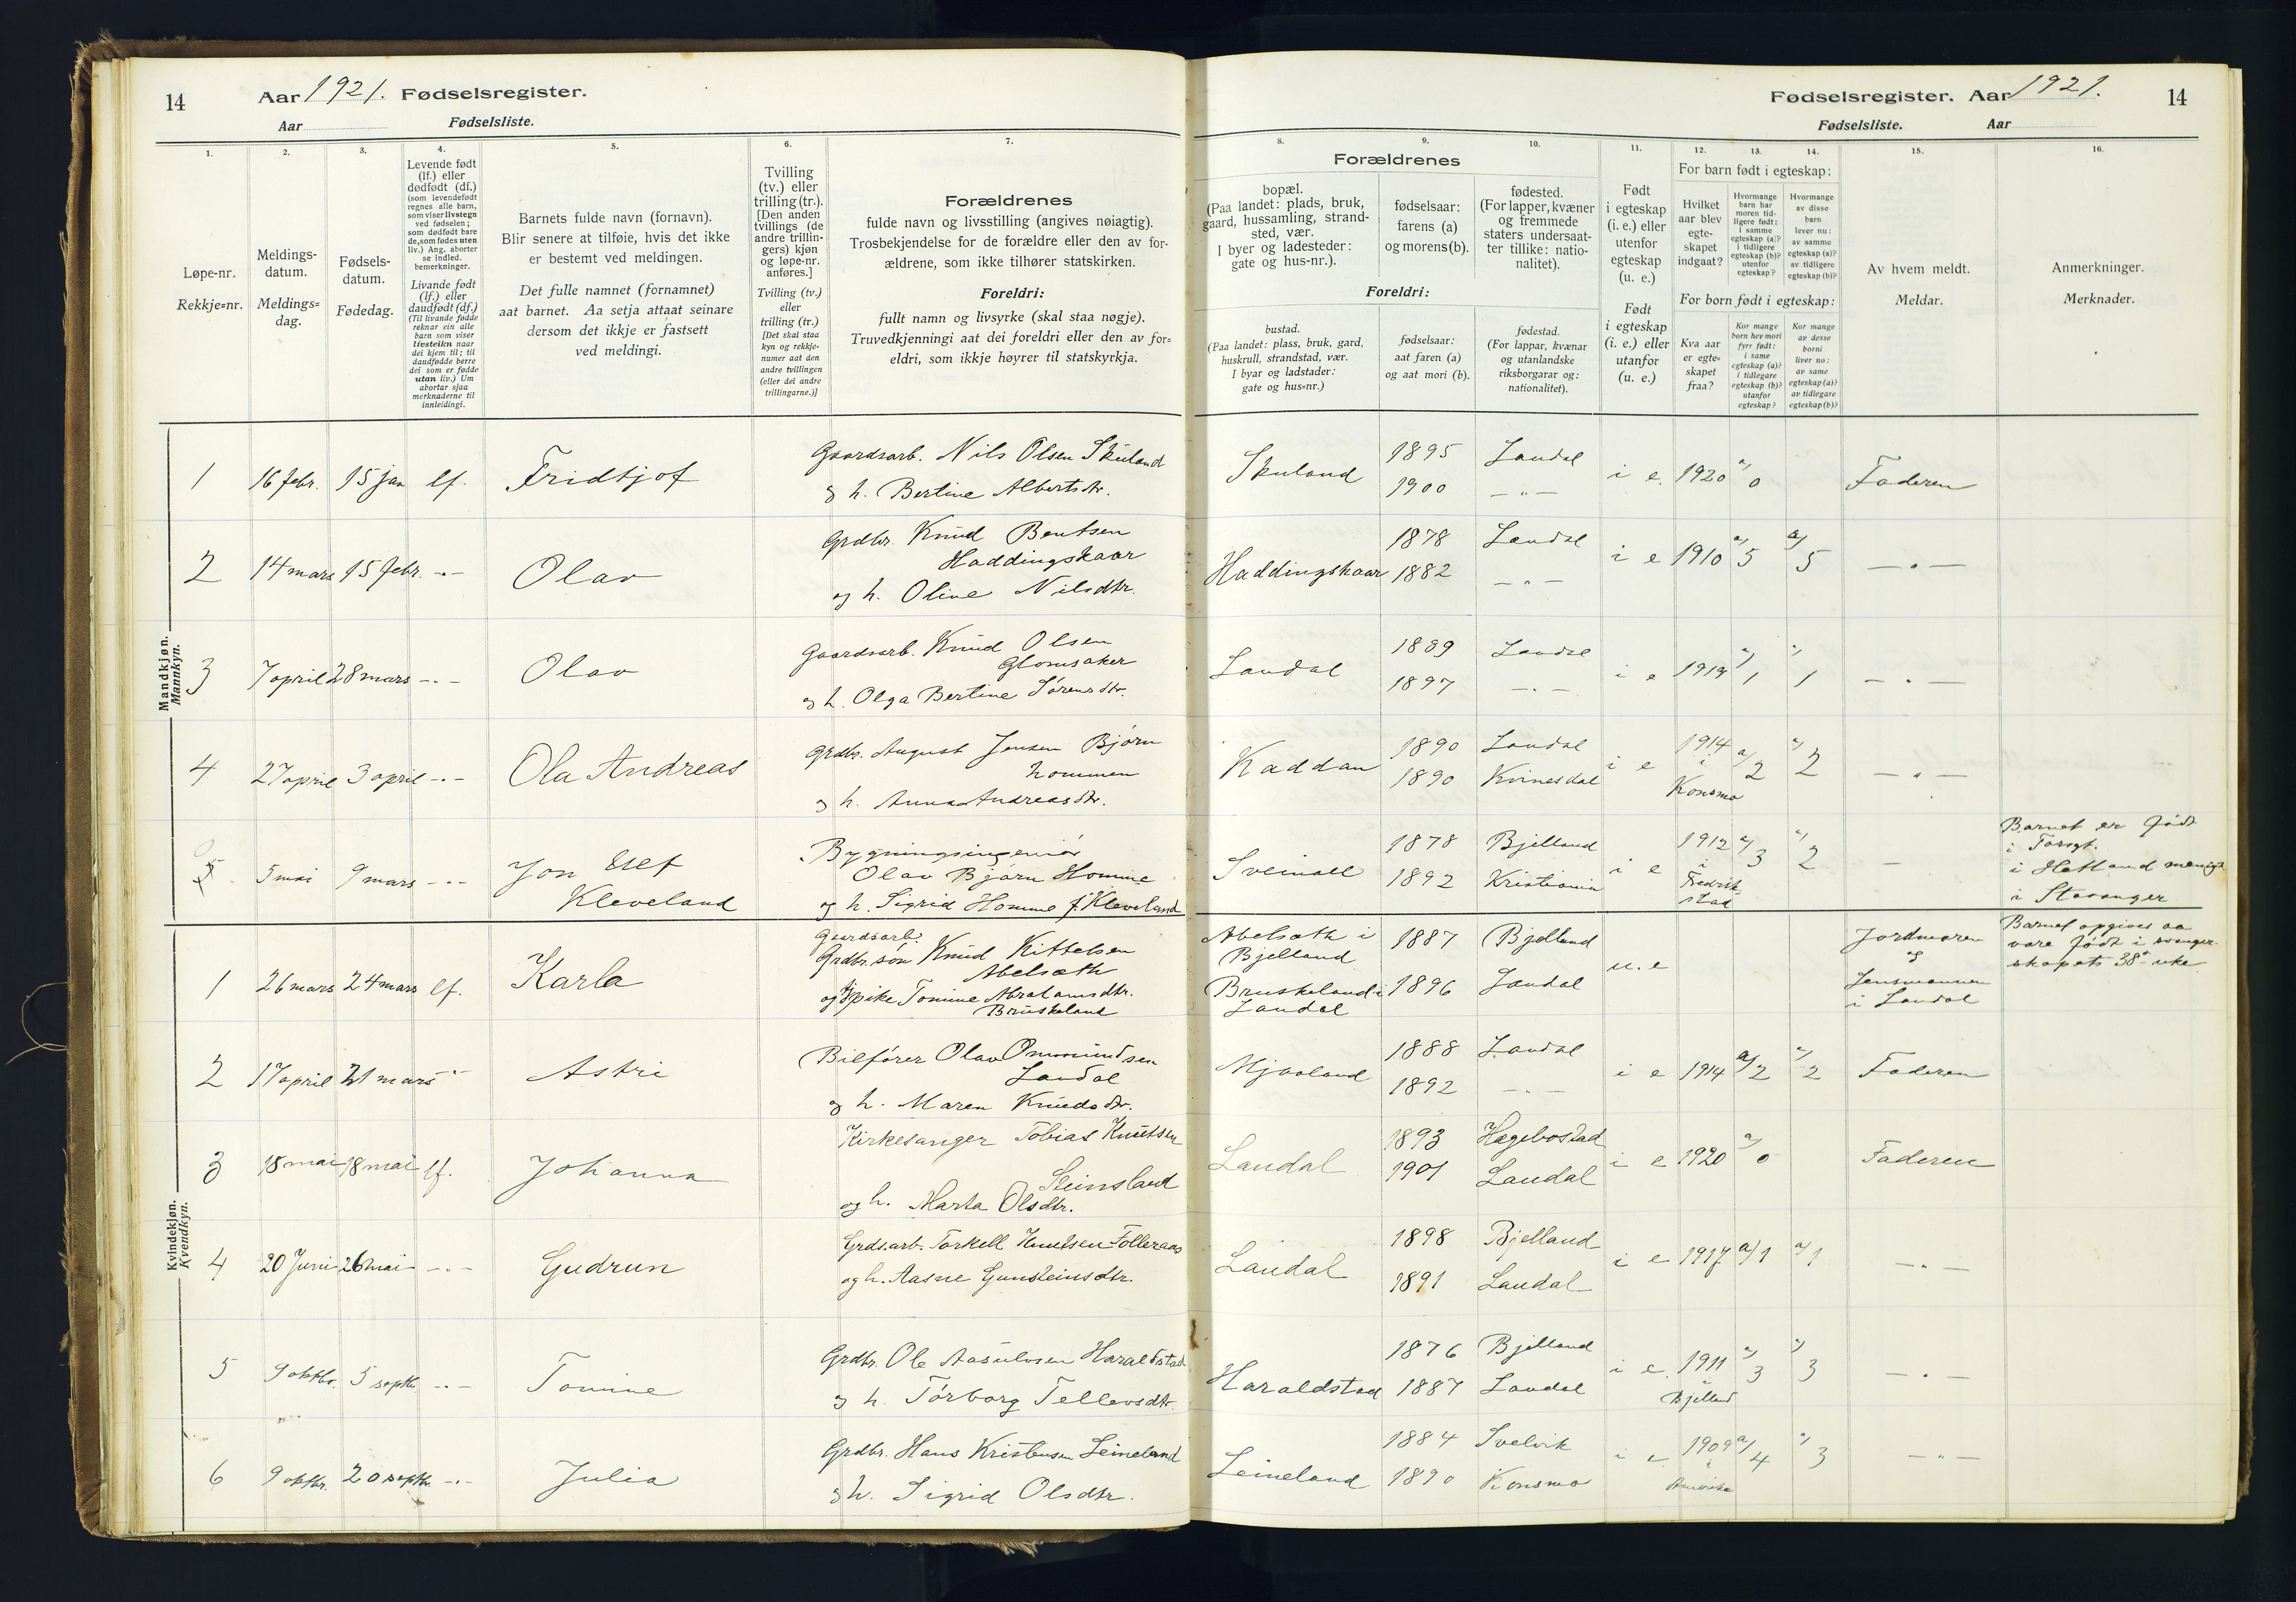 14
Aar 1921. Fødselsregister.
Aar Fødselsliste.
Fødselsregister. Aar 1921.
14
Fødselsliste. Aar
1.
2.
3.
4.
5.
6.
7.
8.
9.
10.
11.
12.
13.
14.
15.
16.
Løpe-nr.
Rekkje=nr.
Meldings-
datum.
Meldings=
dag.
Fødsels-
datum.
Fødedag.
Levende født
(lf.) eller
dødfødt (df.)
(som levendefødt
regnes alle barn,
som viser livstegn
ved fødselen;
som dødfødt bare
de, som fødes uten
liv.) Ang. aborter
se indled.
bemerkninger.
Livande født
(lf.) eller
daudfødt (df.)
(Til livande fødde
reknar ein alle
barn som viser
livsteikn naar
dei kjem til; til
daudfødde berre
dei som er fødde
utan liv.) Um
abortar sjaa
merknaderne til
innleidingi.
Barnets fulde navn (fornavn).
Blir senere at tilføie, hvis det ikke
er bestemt ved meldingen.
Det fulle namnet (fornamnet)
aat barnet. Aa setja attaat seinare
dersom det ikkje er fastsett
ved meldingi.
Tvilling
(tv.) eller
trilling (tr.).
[Den anden
tvillings (de
andre trillin-
gers) kjøn
og løpe-nr.
anføres.]
Tvilling (tv.)
eller
trilling (tr.)
[Det skal staa
kyn og rekkje-
numer aat den
andre tvillingen
(eller dei andre
trillingarne.)]
Forældrenes
fulde navn og livsstilling (angives nøiagtig).
Trosbekjendelse for de forældre eller den av for-
ældrene, som ikke tilhører statskirken.
Foreldri:
fullt namn og livsyrke (skal staa nøgje).
Truvedkjenningi aat dei foreldri eller den av for=
eldri, som ikkje høyrer til statskyrkja.
Forældrenes
bopæl.
(Paa landet: plads, bruk,
gaard, hussamling, strand-
sted, vær.
I byer og ladesteder:
gate og hus-nr.).
fødselsaar:
farens (a)
og morens (b).
fødested.
(For lapper, kvæner
og fremmede
staters undersaat-
ter tillike: natio-
nalitet).
Foreldri:
bustad.
(Paa landet: plass, bruk, gard,
huskrull, strandstad, vær.
I byar og ladstader:
gate og hus=nr.)
fødselsaar:
aat faren (a)
og aat mori (b).
fødestad.
(For lappar, kvænar
og utanlandske
riksborgarar og:
nationalitet).
Født
i egteskap
(i. e.) eller
utenfor
egteskap
(u. e.)
Født
i egteskap
(i. e.) eller
utanfor
(u. e.)
For barn født i egteskap:
Hvilket
aar blev
egte-
skapet
indgaat?
Hvormange
barn har
moren tid-
ligere født:
i samme
egteskap (a)?
i tidligere
egteskap (b)?
utenfor
egteskap?
Hvormange
av disse
barn
lever nu:
av samme
egteskap (a)?
av tidligere
egteskap (b)?
For born født i egteskap:
Kva aar
er egte=
skapet
fraa?
Kor mange
born hev mori
fyrr født:
i same
egteskap (a)?
i tidlegare
egteskap (b)?
utanfor
egteskap?
Kor mange
av desse
borni
liver no:
av same
egteskap (a)?
av tidlegare
egteskap (b)?
Av hvem meldt.
Meldar.
Anmerkninger.
Merknader.
Mandkjøn.
Mannkyn.
1 16 febr. 15 jan lf. Fridtjof
Gaardsarb. Nils Olsen Skuland
og h. Bertine Albertsdtr.
Skuland 1895 Laudal i e. 1920 a/ 0 Faderen
1900 — " —
2 14 mars 15 febr. - " - Olav
Grdbr. Knud Bentsen
Haddingskaar
og h. Oline Nilsdtr.
Haddingskaar 1878 Laudal i e 1910 a/ 5 a/ 5 — " —
1882 — " —
3 7 april 28 mars - " - Olav
Gaardsarb. Knud Olsen
Glomsaker
og h. Olga Bertine Sørensdtr.
Laudal 1889 Laudal i e 1919 a/ 1 a/ 1 — " —
1897 — " —
4 27 april 3 april - " - Ola Andreas
Grdbr. August Jensen Bjørn
hommen
og h. Anna Andreasdtr.
Kaddan 1890 Laudal i e 1914 i Konsmo a/ 2 a/ 2 — " —
1890 Kvinesdal
5 5 mai 9 mars - " - Jon
Kleveland
Bygningsingeniør
Olav Bjørn Homme
og h. Sigrid Homme f. Kleveland
Sveinall 1878 Bjelland i e 1912 i Fredrik-
stad a/ 3 a/ 2 —
1892 Kristiania
Barnet er født
i Hetland menigh
i Stavanger
Kvindekjøn.
Kvendkyn.
1 26 mars 24 mars lf. Karla
Gaardsarb.
Grdbr. søn Knud Kittelsen
Abelsæth
og pike Tomine Abrahamsdtr.
Bruskeland
Abelsæth i
Bjelland
1887 Bjelland u. e
Bruskeland i
Laudal
1896 Laudal
Jordmoren
og
Lensmannen
i Laudal
Barnet opgives aa
være født i svanger-
skapets 38 uke
2 17 april 21 mars - " - Astri
Bilfører Olav Ommundsen
Laudal
og h. Maren Knudsdtr.
Mjaaland 1888 Laudal i e 1914 a/ 2 a/ 2 Faderen
1892 — " —
3 18 mai 18 mai lf. Johanna
Kirkesanger Tobias Knutsen
Steinsland
og h. Marta Olsdtr.
Laudal 1893 Hægebostad i e 1920 a/ 0 Faderen
1901 Laudal
4 20 Juni 26 mai - " - Gudrun
Grdsarb. Torkell Knutsen Folleraas
og h. Aasne Gunsteinsdtr.
Laudal 1898 Bjelland i e 1917 a/ 1 a/ 1 — " —
1891 Laudal
5 9 oktbr. 5 septb - " - Tomine
Grdbr. Ole Aasulvsen Haraldstad
og h. Torborg Tellevsdtr.
Haraldstad 1876 Bjelland i e. 1911 i Bjelland a/ 3 a/ 3 — " —
1887 Laudal
6 9 oktbr. 20 septbr. - " - Julia
Grdbr. Hans Kristensen Leineland
og h. Sigrid Olsdtr.
Leineland 1884 Svelvik i e. 1909 i Amerika a/ 4 a/ 3 — " —
1890 Konsmo